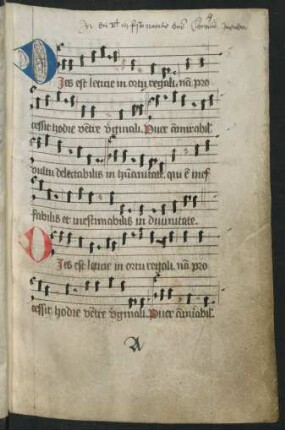 Dies est leticie in ortu regali, nā pro
cessit hodie ventre vginali. Puer amirabil'
vultu delectabilis in hūanitate, qui ē inef
fabilis et inestimabilis in diuinitate.
Dies est leticie in ortu regali. nā pro
cessit hodie ventre vginali. Puer amirabil'
A